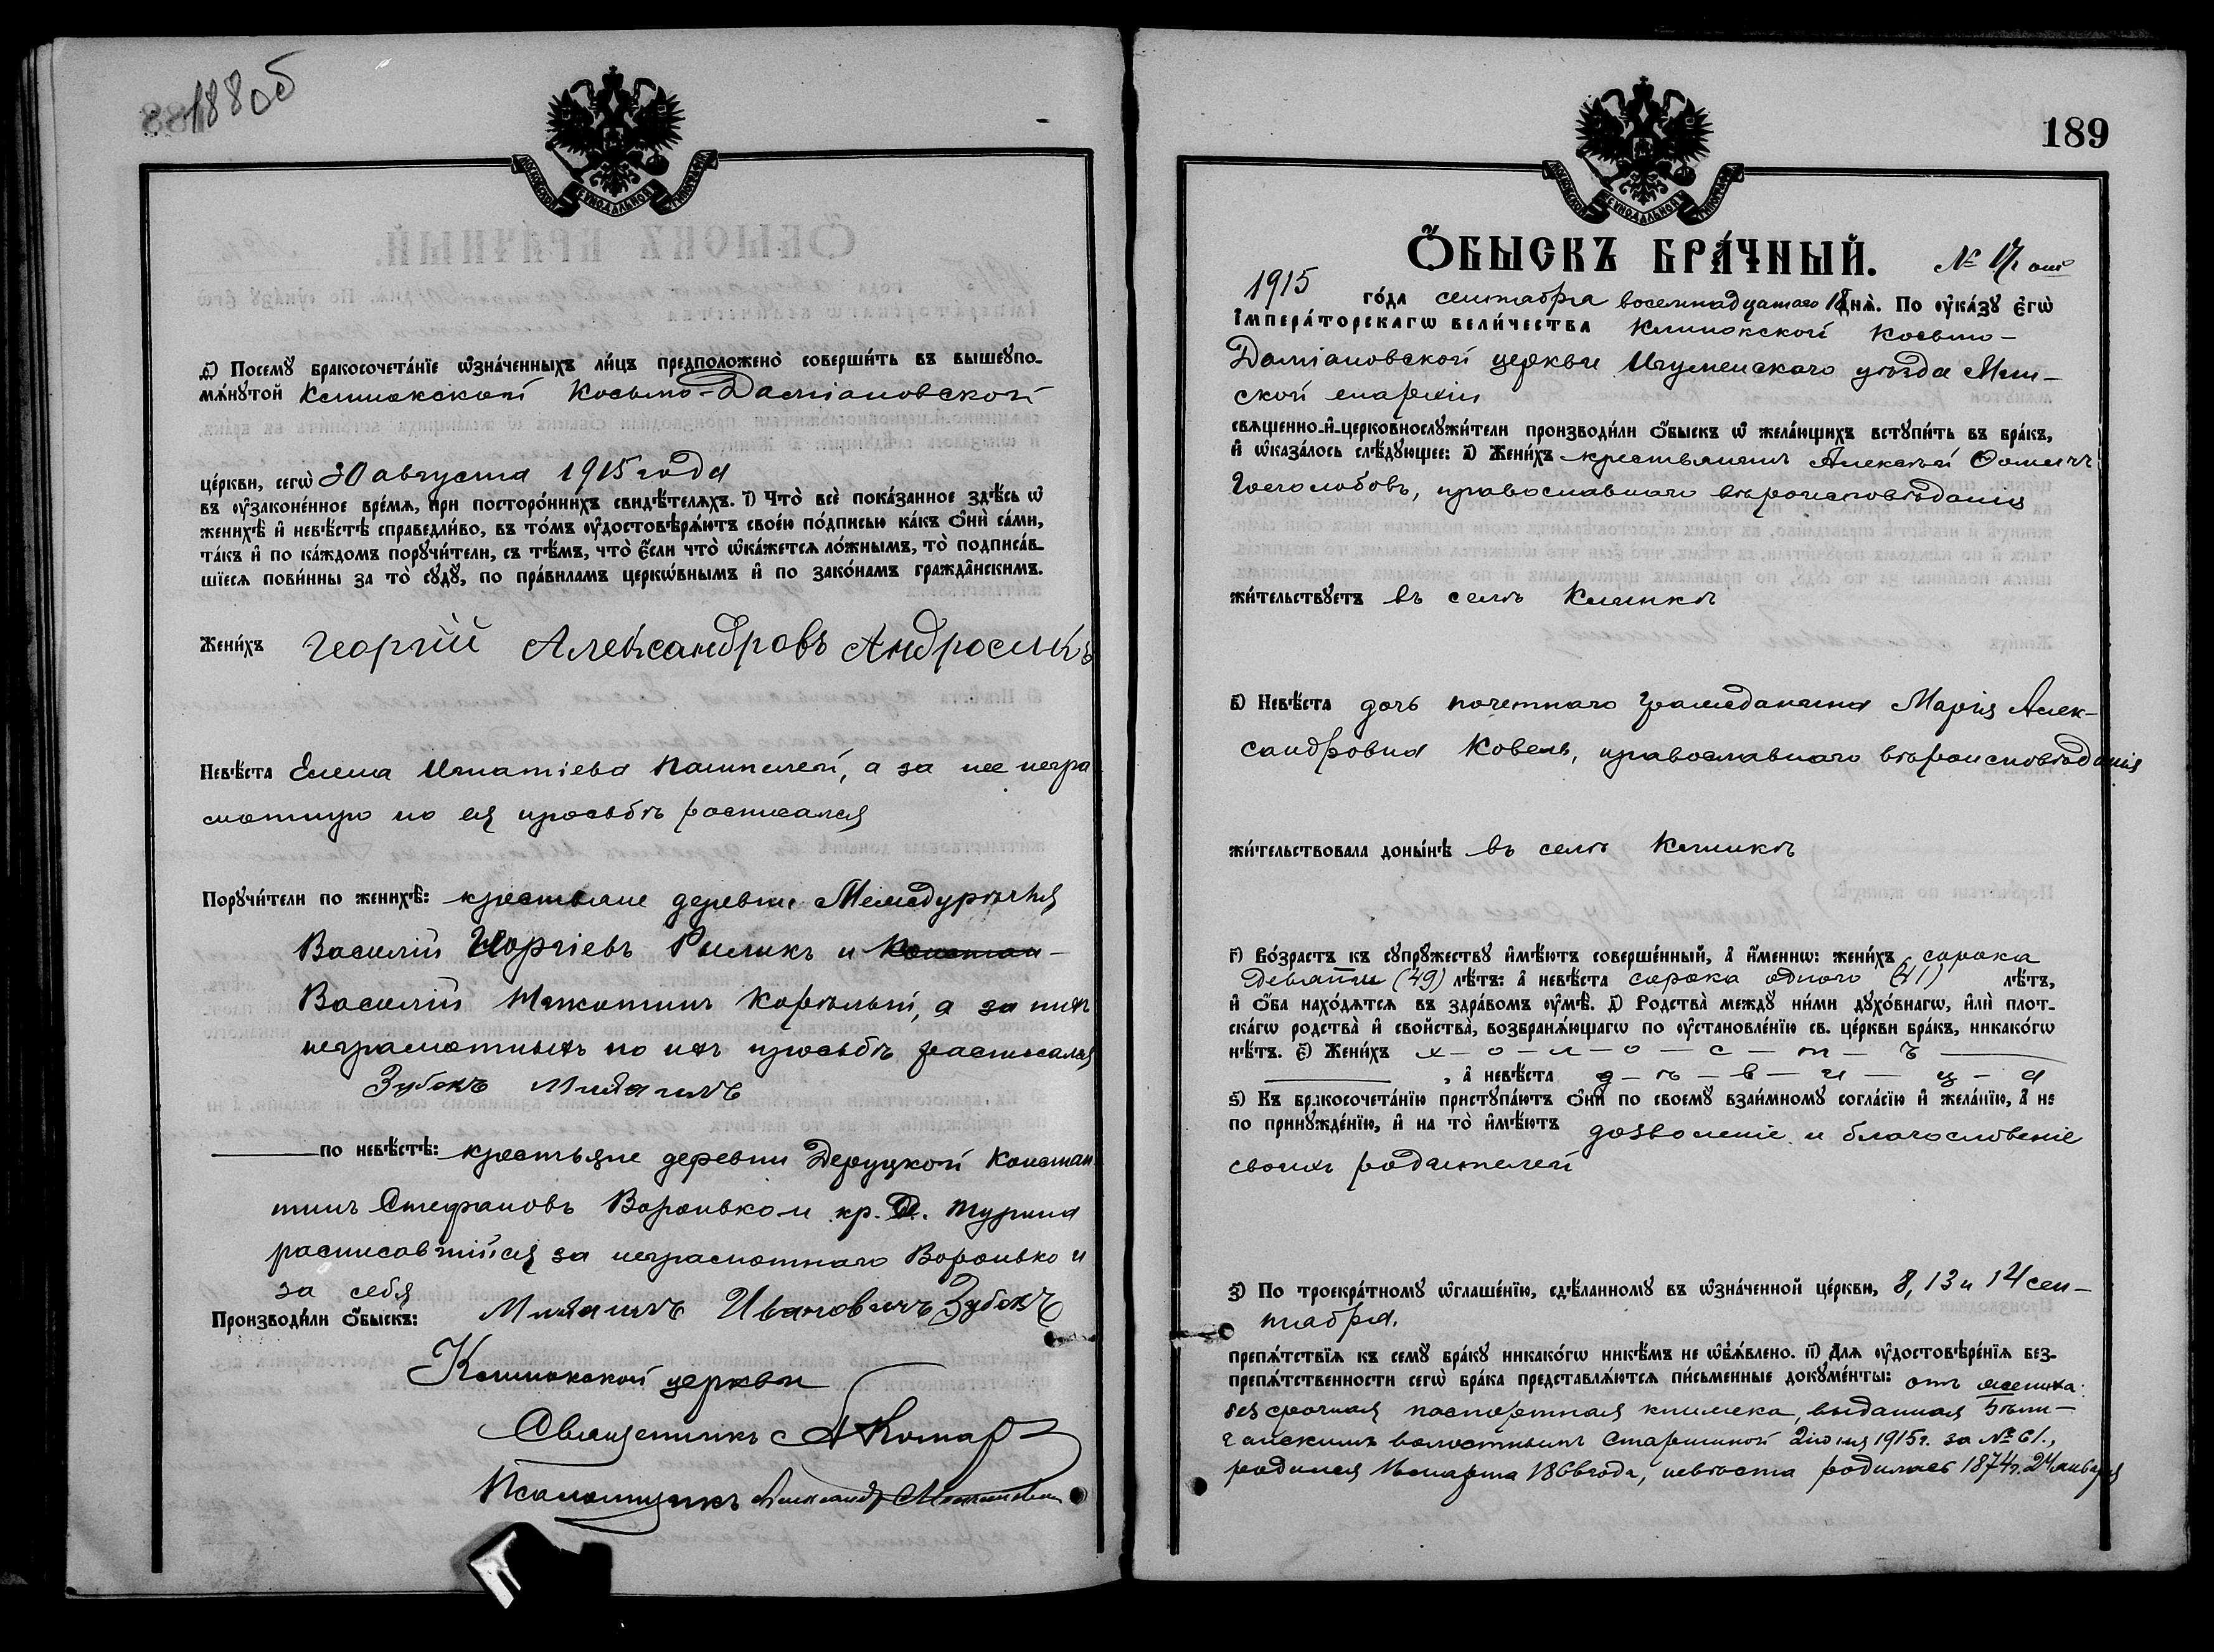 188 об
д҃) Посемꙋ бракосочета́нїе ѡ҆зна́ченныхъ ли́цъ предполо́жено соверши́ть въ вышеꙋпо-
мѧ́нꙋтой Клинокской Косьмо-Даміановской
це́ркви, сегѡ̀ 30 августа 1915 года
въ ᲂу҆законе́нное вре́мѧ, при посторо́ннихъ свидѣ́телѧхъ. і҃) Что̀ всѐ пока́занное здѣ́сь ѡ҆
женихѣ̀ и҆ невѣ́стѣ справедли́во, въ то́мъ ᲂу҆достовѣрѧ́ютъ свое́ю по́дписью ка́къ ѻ҆нѝ са́ми,
та́къ и҆ по ка́ждомъ порꙋчи́тели, съ тѣ́мъ, что̀ є҆́сли что̀ ѡ҆ка́жетсѧ ло́жнымъ, то̀ подписа́в-
шїесѧ пови́нны за то̀ сꙋдꙋ̀, по пра́виламъ церко́внымъ и҆ по зако́намъ гражда́нскимъ.
Жени́хъ Георгій Александровъ Андросикъ
Невѣ́ста Елена Игнатіева, а за нее негра
мотную по ея просьбѣ росписался
Порꙋчи́тели по женихѣ̀: крестьяне деревни Междурѣчья
Василій Георгіевъ Рыликъ и Констан-
Василій Корѣлый, а за нихъ
неграмотныхъ по ихъ просьбѣ расписался
Зубокъ Михаилъ
по невѣ́стѣ: крестьяне деревни Деруцкой Констан
тинъ Стефановъ Воронько и кр. д. Турина
расписавшійся за неграмотнаго Воронько и
за себя
Михаилъ Ивановичъ Зубокъ
Производи́ли ѻ҆́быскъ:
Клинокской церкви
Священникъ А Комар
Псаломщикъ Александр
189
Ѻ҆́БЫСКЪ БРА́ЧНЫЙ. № 17
1915 го́да сентября восемнадцатаго 18 днѧ̀. По ᲂу҆ка́зꙋ є҆гѡ̀
і҆мпера́торскагѡ вели́чества Клинокской Косьмо-
Даміановской церкви Игуменскаго уѣзда Мин-
ской епархіи
свѧще́нно-и҆-церковнослꙋжи́тели производи́ли ѻ҆́быскъ ѡ҆ жела́ющихъ встꙋпи́ть въ бра́къ,
и҆ ѡ҆каза́лось слѣ́дꙋющее: а҃) Жени́хъ крестьянинъ Алексѣй Ѳомичъ
Боголюбовъ, православнаго вѣроисповѣданія
жи́тельствꙋетъ въ селѣ Клинкѣ
в҃) Невѣ́ста дочь почетнаго гражданина Марія Алек-
сандровна Ковель, православнаго вѣроисповѣданія
жи́тельствовала доны́нѣ въ селѣ Клинкѣ
г҃) Во́зрастъ къ сꙋпрꙋ́жествꙋ и҆мѣ́ютъ соверше́нный, а҆ и҆́меннѡ: жени́хъ сорока
девяти (49) лѣ́тъ: а҆ невѣ́ста сорока одного (41) лѣ́тъ,
и҆ ѻ҆́ба нахо́дѧтсѧ въ здра́вомъ ᲂу҆мѣ̀. д҃) Родства̀ междꙋ ни́ми дꙋхо́внагѡ, и҆лѝ плот-
ска́гѡ родства̀ и҆ сво́йства, возбранѧ́ющагѡ по ᲂу҆становле́нїю св. це́ркви бра́къ, никако́гѡ
нѣ́тъ. є҃) Жени́хъ х-о-л-о-с-т-ъ
, а҆ невѣ́ста д-ѣ-в-и-ц-а
ѕ҃) Къ бракосочета́нїю пристꙋпа́ютъ ѻ҆нѝ по своемꙋ̀ взаи́мномꙋ согла́сїю и҆ жела́нїю, а҆ не
по принꙋжде́нїю, и҆ на то̀ и҆мѣ́ютъ дозволеніе и благословеніе
своихъ родителей
з҃) По троекра́тномꙋ ѡ҆глаше́нїю, сдѣ́ланномꙋ въ ѡ҆зна́ченной це́ркви, 8, 13 и 14 сен-
тября.
препѧ́тствїѧ къ семꙋ̀ бра́кꙋ никако́гѡ никѣ́мъ не ѡ҆б̾ѧ́влено. и҃) Длѧ̀ ᲂу҆достовѣре́нїѧ без-
препѧ́тственности сегѡ̀ бра́ка представлѧ́ютсѧ пи́сьменные докꙋме́нты: отъ жениха:
безсрочная паспортная книжка, выданная Бѣли-
чанскимъ волостнымъ старшиной 2 іюня 1915 г. за № 61.,
родился марта 1866 года, невѣста родилась 1874 г. 24 января